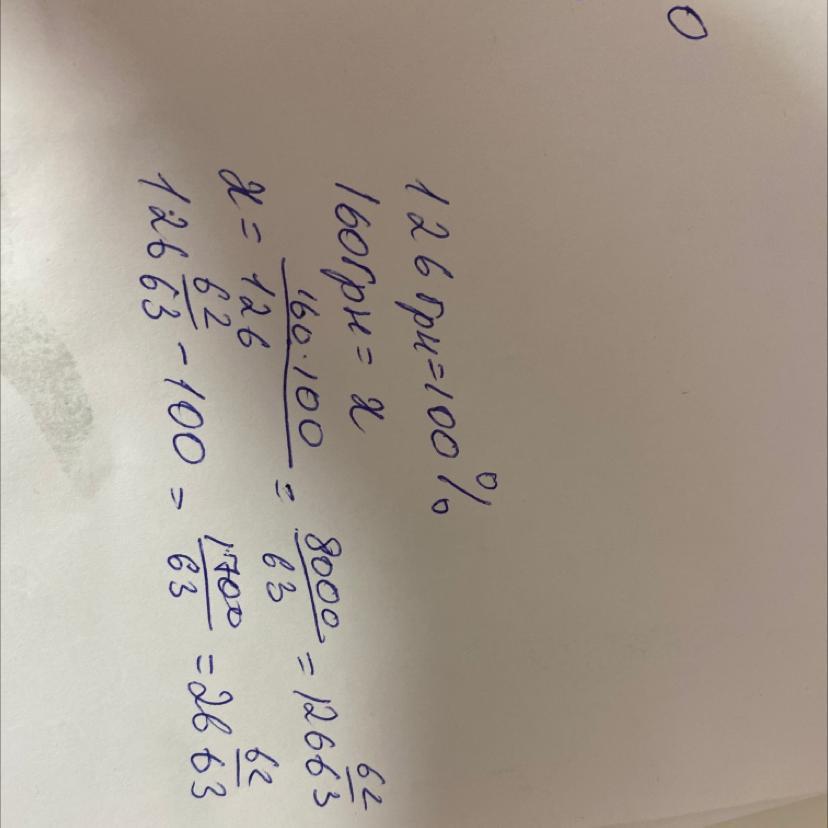 0
126 грн = 100%
160 грн = x
x = 160 · 100 / 126 = 8000/63 = 126 62/63
126 62/63 - 100 = 1700/63 = 26 62/63